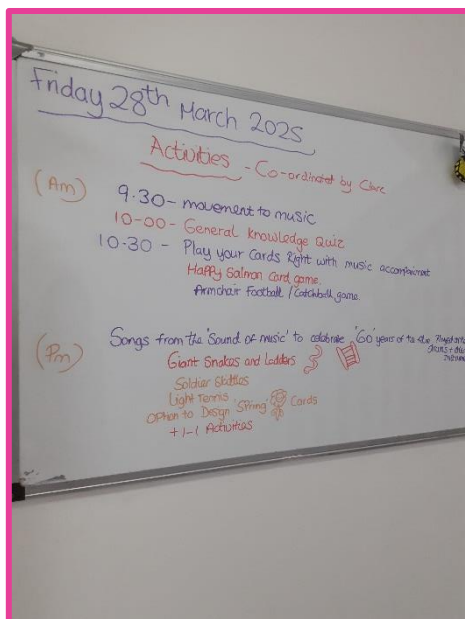 Friday 28th March 2025
Activities - Co-ordinated by Clare
(Am)
9.30 - movement to music
10-00 - General Knowledge Quiz
10.30 - Play your Cards Right with music accompaniment
Happy Salmon Card game
Armchair Football / Catchball game.
(Pm)
Songs from the 'Sound of music' to celebrate "60" years of the
Giant Snakes and Ladders
Soldier Skittles
Light Tennis
Option to Design 'Spring' Cards
+ 1-1 Activities